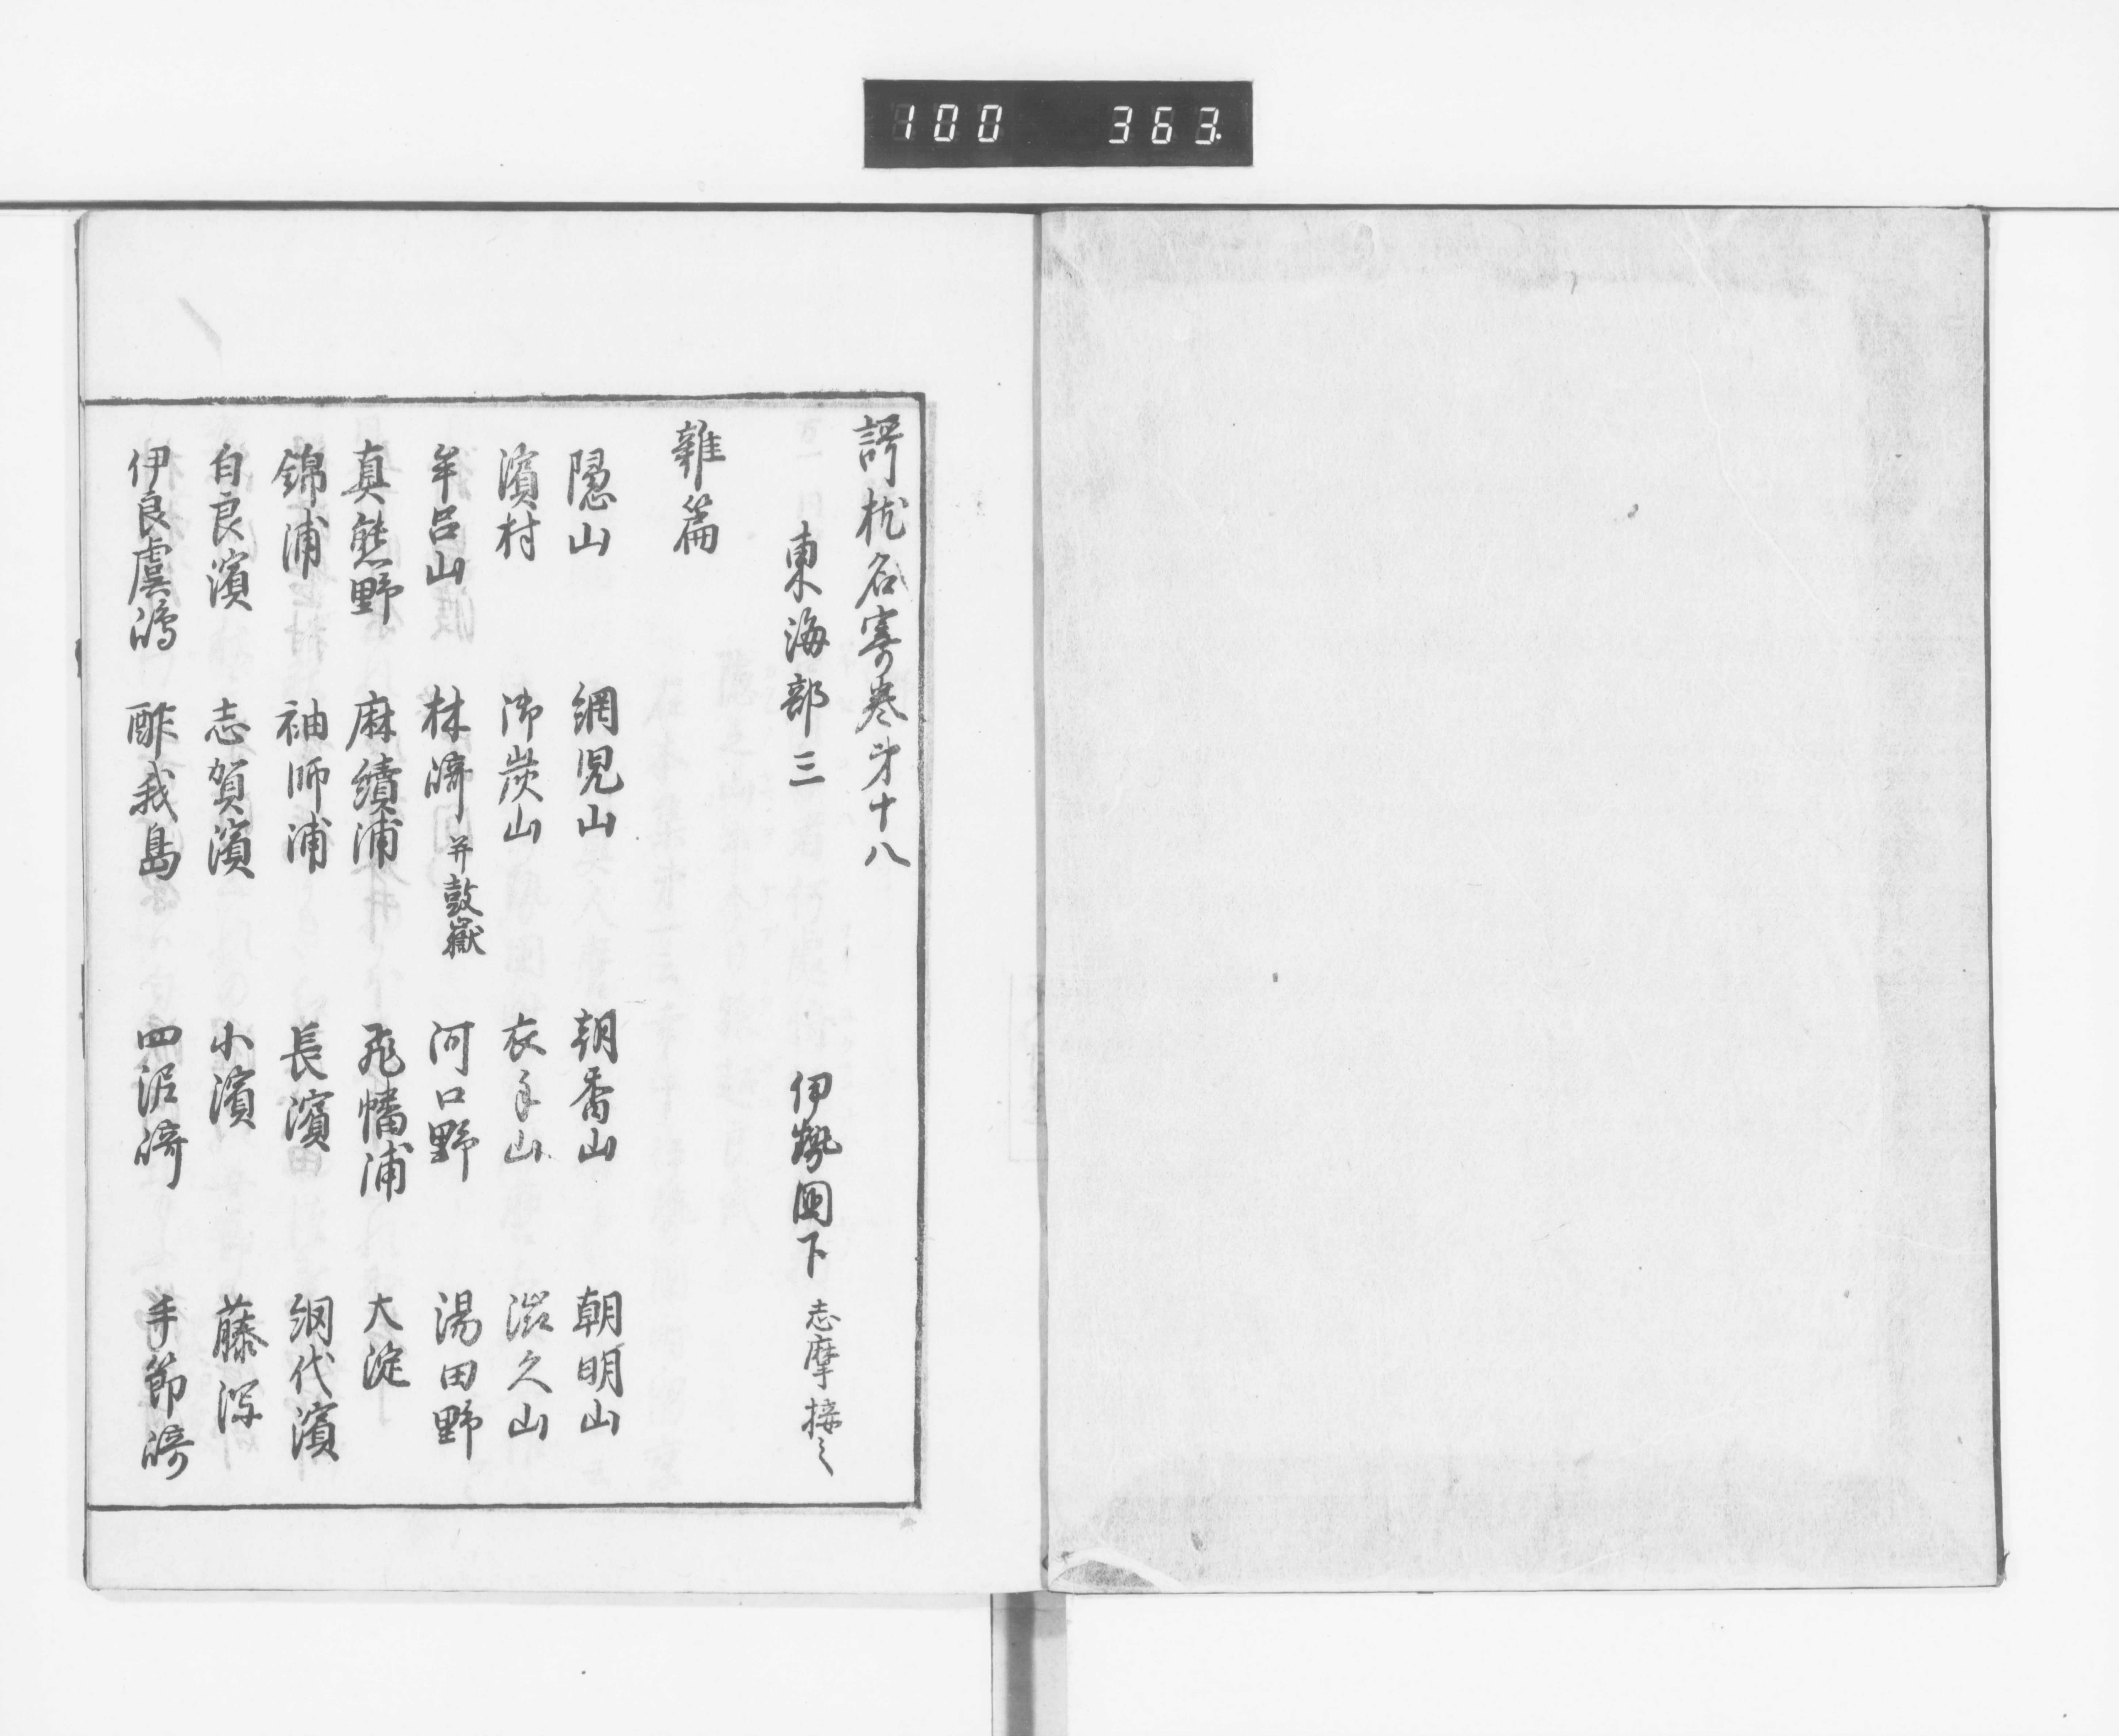 100 363.
謌枕名寄巻第十八
東海部三 伊勢國下 志摩接之
雜篇
隠山 網児山 朝香山 朝明山
濱村 御炭山 衣手山 滋久山
牟呂山 林濟 并皷嶽 河口野 湯田野
真熊野 麻續浦 飛幡浦 大淀
錦浦 袖師浦 長濱 網代濱
白良濱 志賀濱 小濱 藤泻
伊良虞嶋 酢我島 四泥﨑 手節﨑